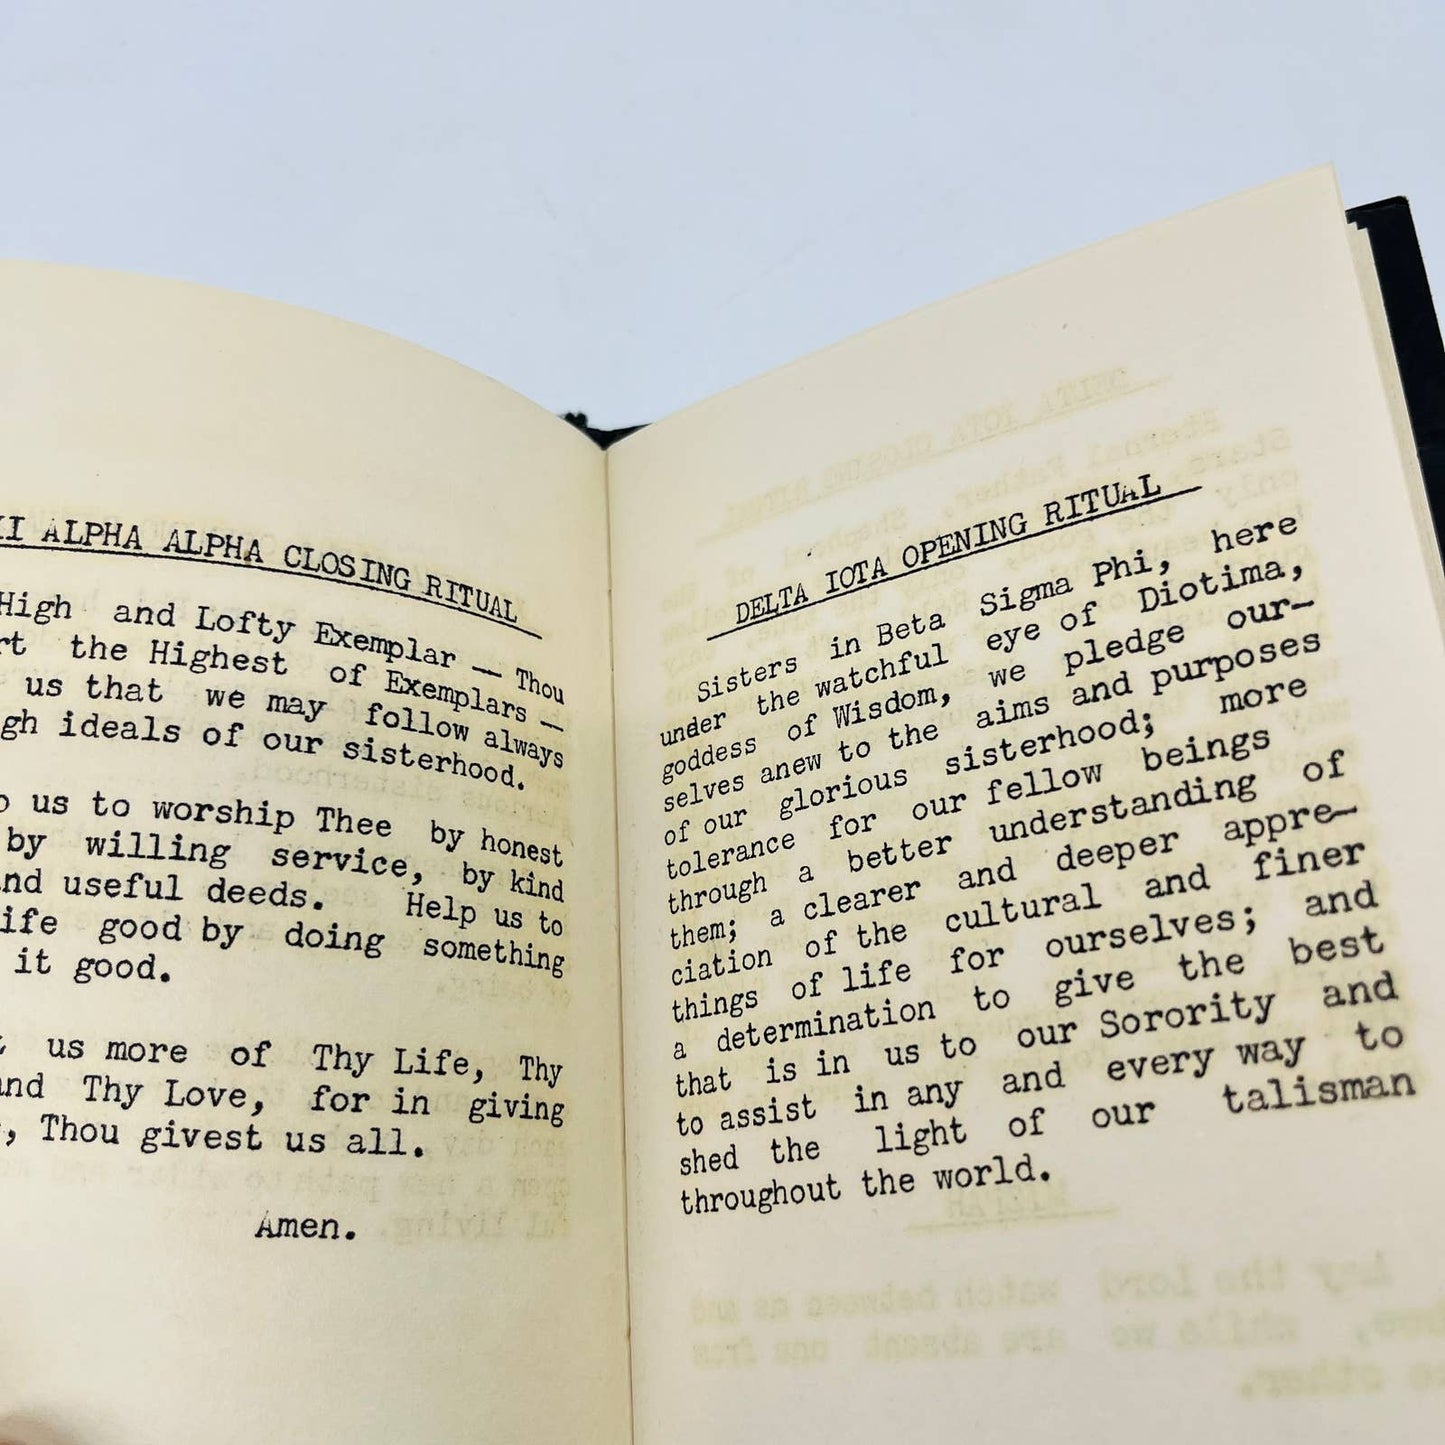 II ALPHA ALPHA CLOSING RITUAL
High and Lofty Exemplar — Thou
the Highest of Exemplars —
us that we may follow always
ideals of our sisterhood.
us to worship Thee by honest
by willing service, by kind
and useful deeds. Help us to
life good by doing something
it good.
us more of Thy Life, Thy
and Thy Love, for in giving
, Thou givest us all.
Amen.
DELTA IOTA OPENING RITUAL
Sisters in Beta Sigma Phi, here
under the watchful eye of Diotima,
goddess of Wisdom, we pledge our-
selves anew to the aims and purposes
of our glorious sisterhood; more
tolerance for our fellow beings
through a better understanding of
them; a clearer and deeper appre-
ciation of the cultural and finer
things of life for ourselves; and
a determination to give the best
that is in us to our Sorority and
to assist in any and every way to
shed the light of our talisman
throughout the world.